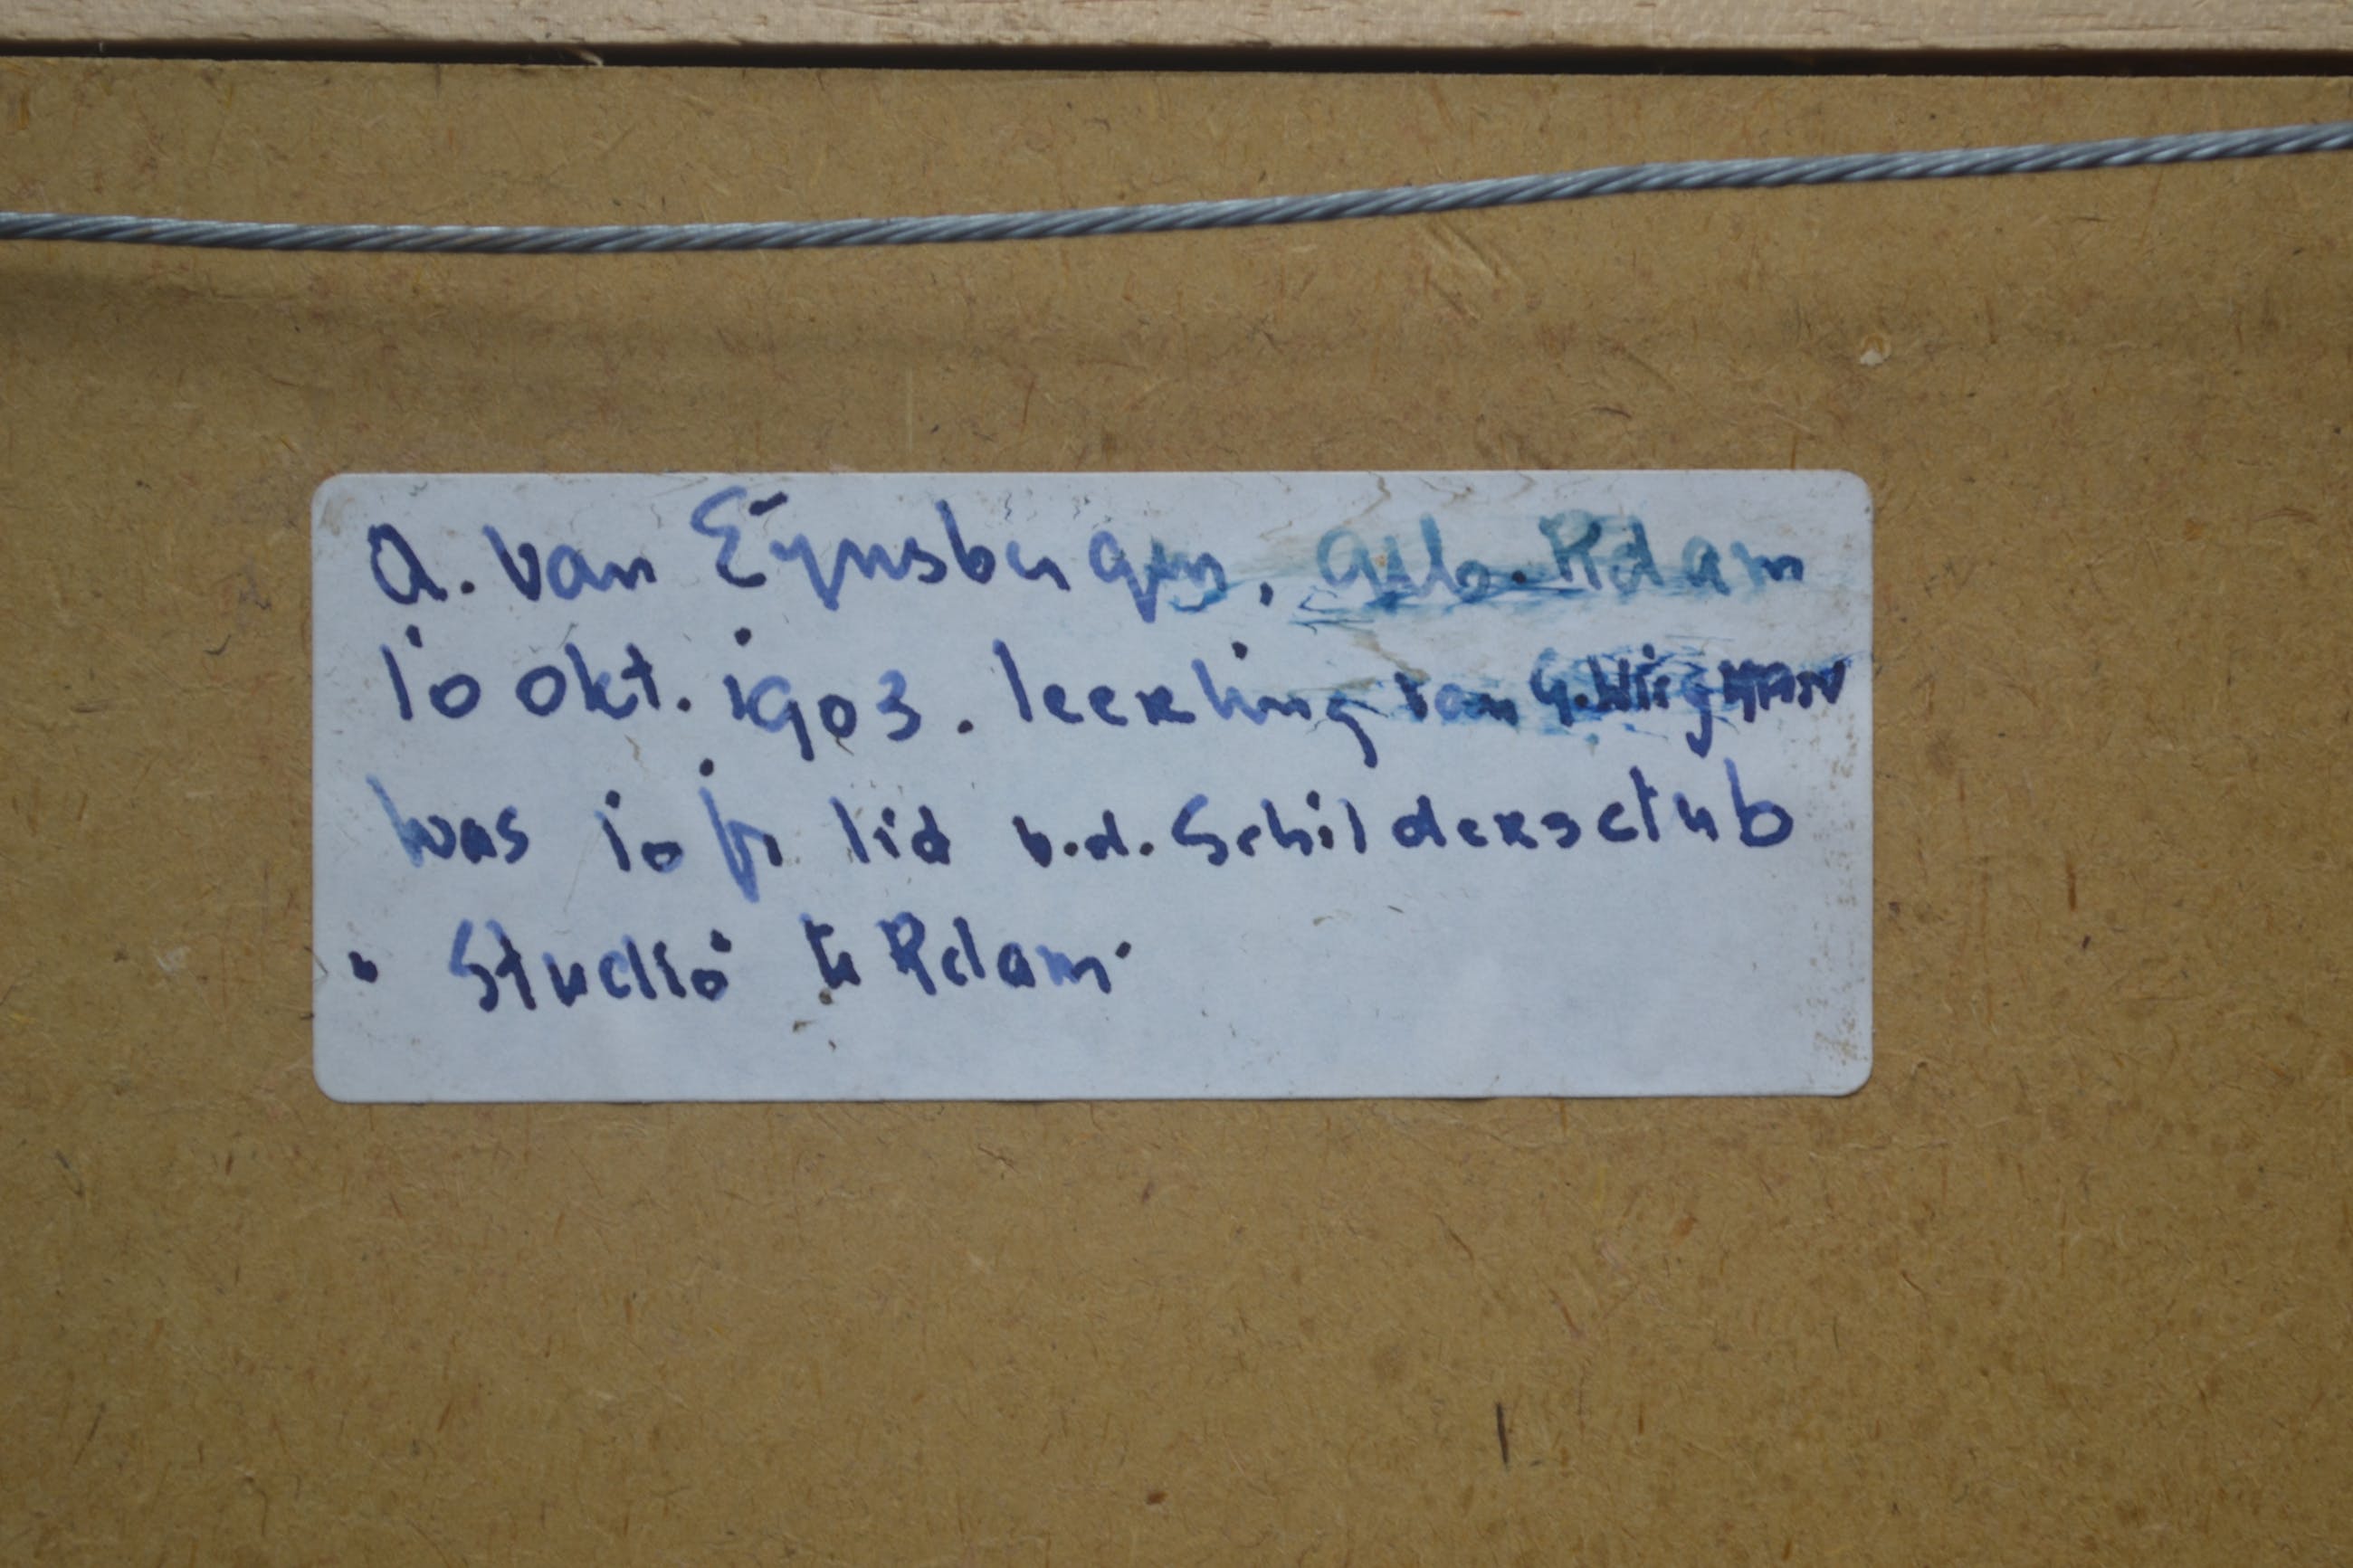 A. van Eynsbergen. Geb. Rdam
10 okt. 1903. leerling van G. Wiegman
was 10 jr lid v.d. Schildersclub
" Studio te Rdam.